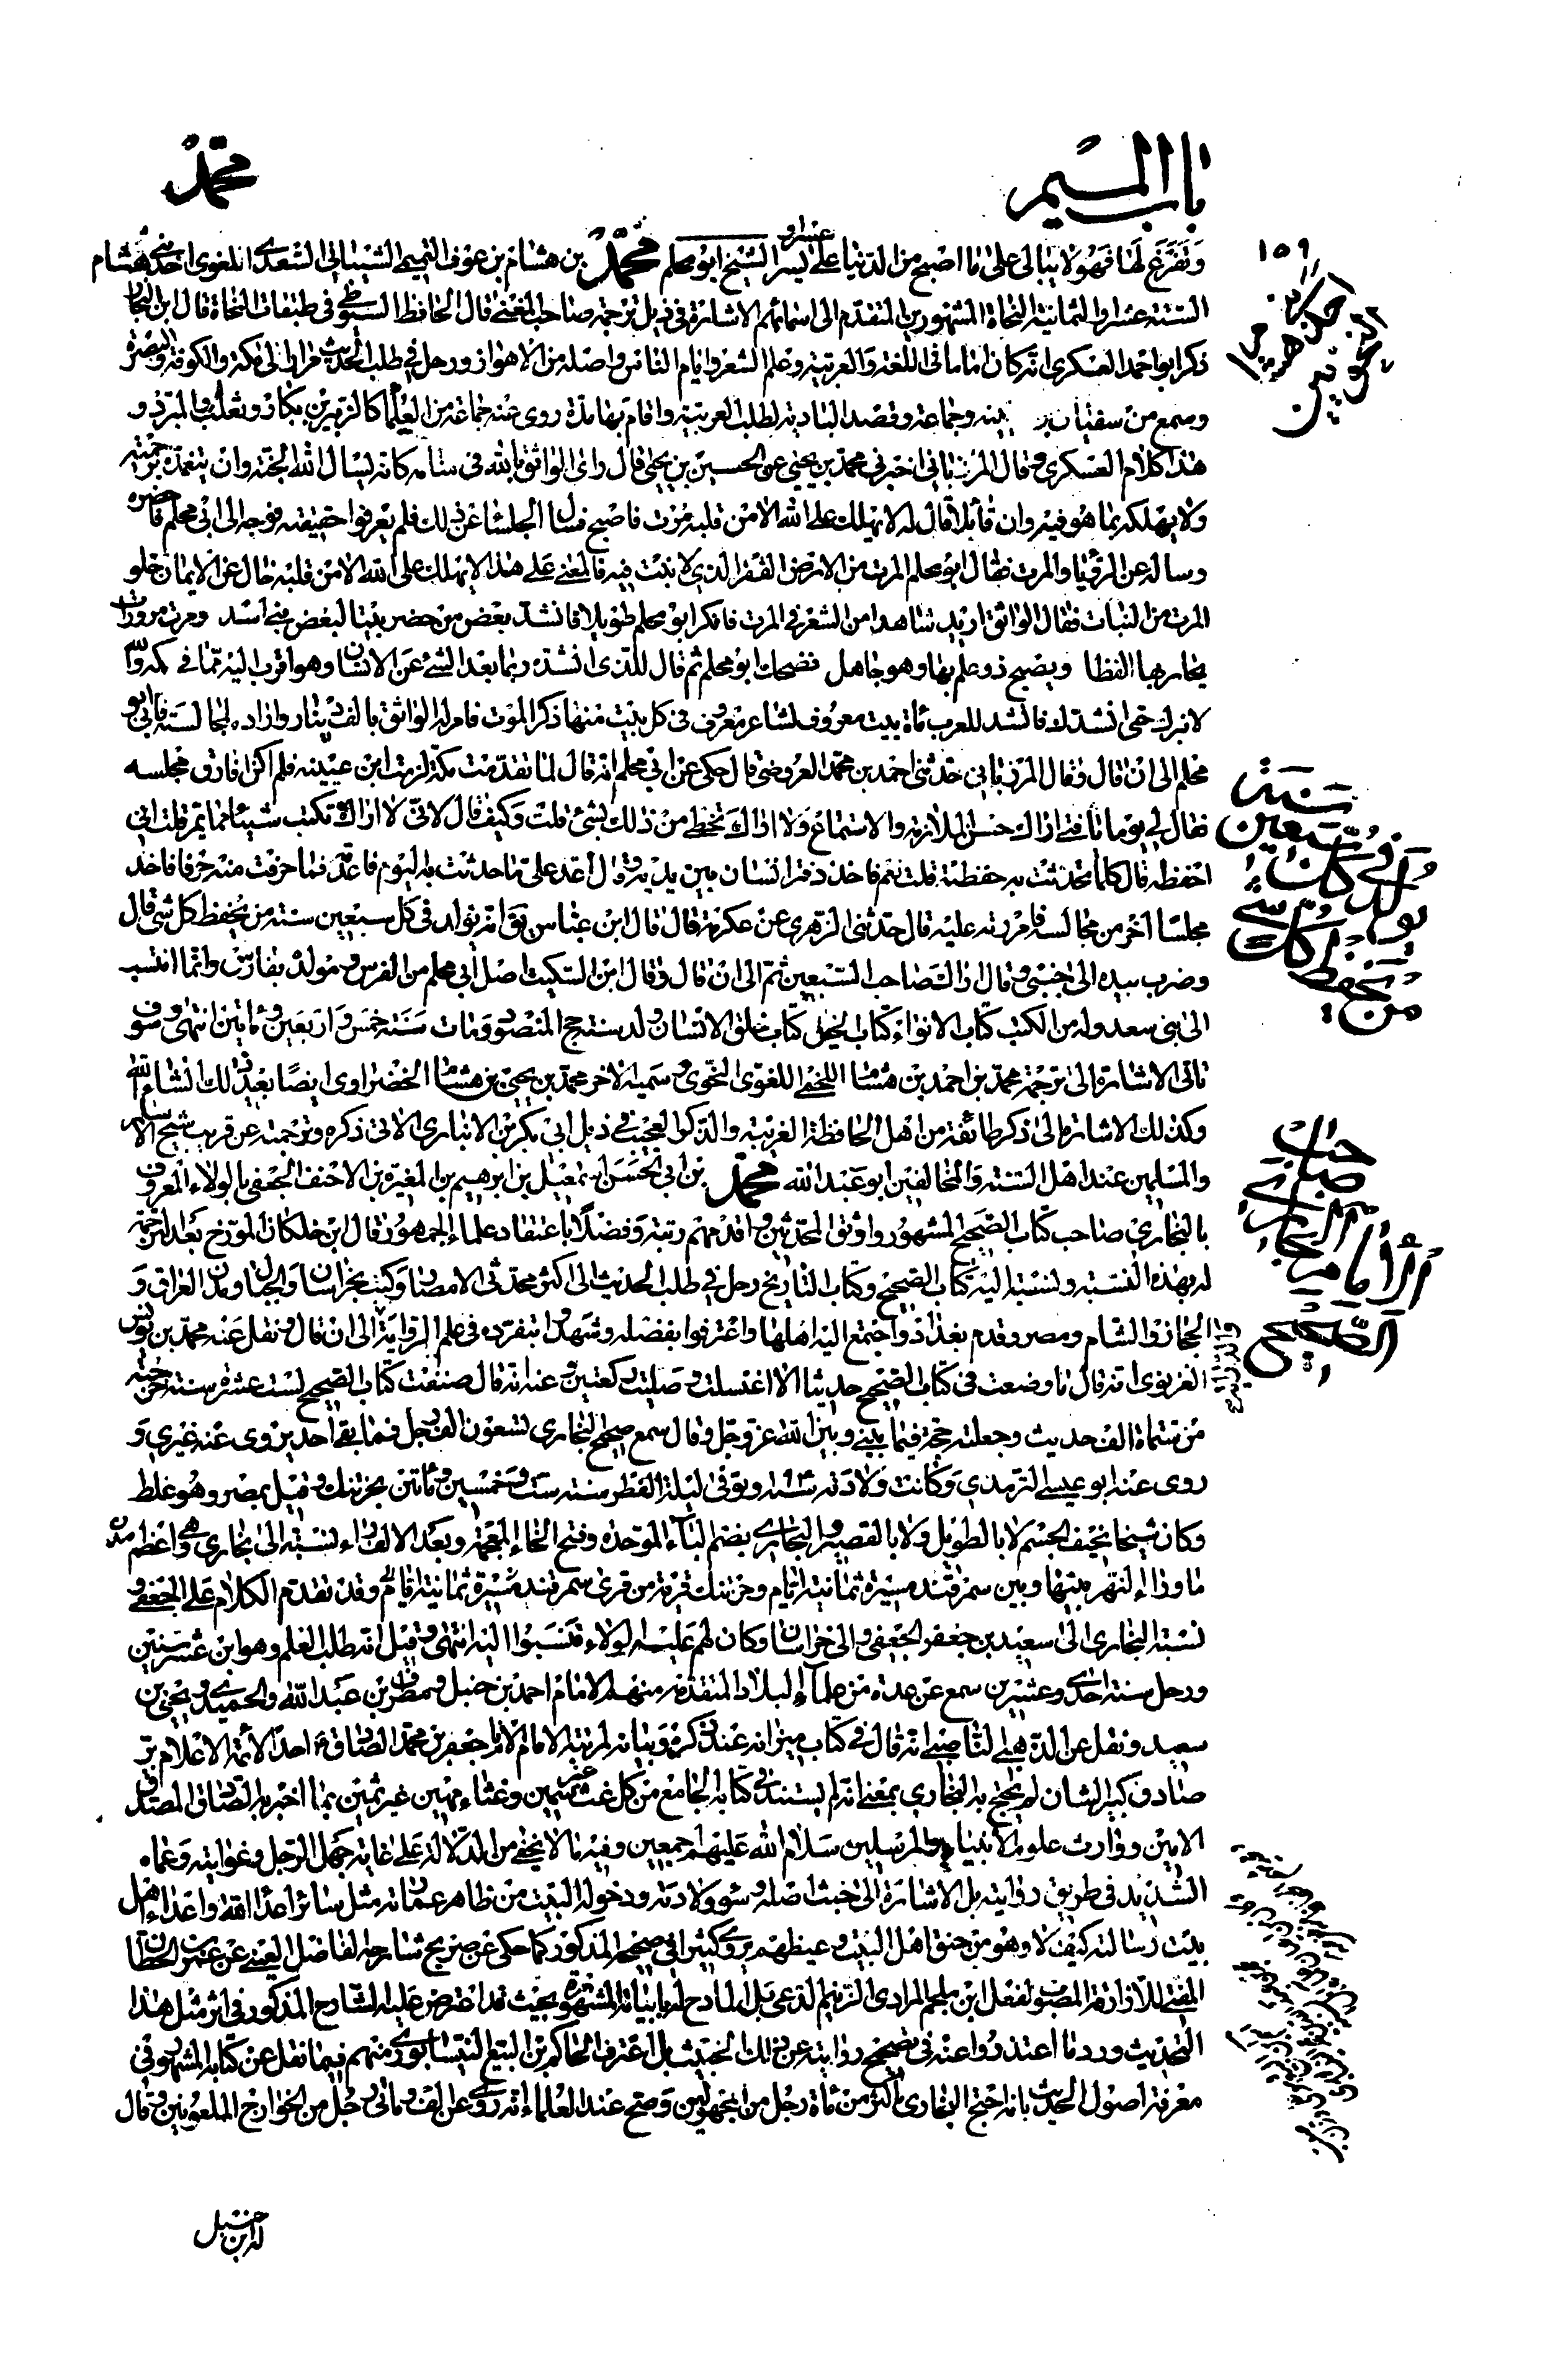 باب الميم
محمد
١٥٩
وتفرغ لها فهو لا يبالى على ما اصبح من الدنيا على عسر او يسر الشيخ ابو محلم محمد بن هشام بن عوف التميمى الشيبانى السعدى اللغوى احد بنى هشام
الستة عشر او الثمانية النحاة المشهورين المتقدم الى اسمائهم الاشارة فى ذيل ترجمة صاحب المغنى قال الحافظ السيوطى فى طبقات النحاة قال ابن النجار
ذكر ابو احمد العسكرى انه كان اماما فى اللغة والعربية وعلم الشعر وايام الناس واصله من الاهواز ورحل فى طلب الحديث الى مكة والكوفة والبصرة
وسمع من سفيان بن عيينه وجماعة وقصد البادية لطلب العربية واقام بها مدة روى عنه جماعة من العلماء كالزبير بن بكار وثعلب والمبرد و
هذا كلام العسكرى وقال المرزبانى اخبرنى محمد بن يحيى عن الحسين بن يحيى قال راى الواثق بالله فى منامه كانه يسال الله الجنة وان يتغمده برحمته
ولا يهلكه بما هو فيه وان قائلا قال له لا يهلك على الله الا من قلبه مرت فاصبح فسال الجلساء عن ذلك فلم يعرفوا حقيقته فوجه الى ابى محلم فاحضره
وساله عن الرؤيا والمرت فقال ابو محلم المرت من الارض القفر الذى لا نبت فيه فالمعنى على هذا لا يهلك على الله الا من قلبه خال عن الايمان خلو
المرت من النبات فقال الواثق اريد شاهدا من الشعر فى المرت فافكر ابو محلم طويلا فانشد بعض من حضر بيتا لبعض بنى اسد ومرت مروت
يحار بها القطا ويصبح ذو علم بها وهو جاهل فضحك ابو محلم ثم قال للذى انشده ربما بعد الشئ عن الانسان وهو اقرب اليه مما فى كمه والله
لا تبرح حتى انشدك فانشد للعرب مأة بيت معروف لشاعر معروف فى كل بيت منها ذكر المرت فامر له الواثق بالف دينار واراده لمجالسته فابى ابو
محلم الى ان قال وقال المرزبانى حدثنى احمد بن محمد العروضى قال حكى عن ابى محلم انه قال لما قدمت مكة لزمت ابن عيينه فلم اكن افارق مجلسه
فقال لى يوما يا فتى اراك حسن الملازمة والاستماع ولا اراك تحظى من ذلك بشئ قلت وكيف قال لانى لا اراك تكتب شيئا مما يمر قلت انى
احفظه قال كلما تحدثت به حفظته قلت نعم فاخذ دفتر انسان بين يديه وقال اعد على ما حدثت به اليوم فاعدته فما حرفت منه حرفا فاخذ
مجلسا اخر من مجالسه فامررته عليه قال حدثنى الزهرى عن عكرمة قال قال ابن عباس يق انه يولد فى كل سبعين سنة من يحفظ كل شئ قال
وضرب بيده الى جنبى وقال اراك صاحب السبعين ثم الى ان قال وقال ابن السكيت اصل ابى محلم من الفرس ومولده بفارس وانما انتسب
الى بنى سعد وله من الكتب كتاب الانواء كتاب الخيل كتاب خلق الانسان ولد سنة حج المنصور ومات سنة خمس واربعين ومأتين انتهى وسوف
تاتى الاشارة الى ترجمة محمد بن احمد بن هشام اللخمى اللغوى النحوى وسميه الاخر محمد بن يحيى بن هشام الخضراوى ايضا بعيد ذلك انشاء الله
وكذلك الاشارة الى ذكر طائفة من اهل الحافظة الغريبة والذكر العجيب فى ذيل ابى بكر بن الانبارى الاتى ذكره وترجمته عن قريب شيخ الاسلام
والمسلمين عند اهل السنة والمخالفين ابو عبد الله محمد بن ابى الحسن اسمعيل بن ابرهيم بن المغيرة بن الاحنف الجعفى بالولاء المعروف
بالبخارى صاحب كتاب الصحيح المشهور واوثق المحدثين واقدمهم رتبة وفضلا باعتقاد علماء الجمهور قال ابن خلكان المورخ بعد الترجمة
له بهذه النسبة ونسبته اليه كتاب الصحيح وكتاب التاريخ رحل فى طلب الحديث الى اكثر محدثى الامصار وكتب بخراسان والجبال ومدن العراق و
الحجاز والشام ومصر وقدم بغداد واجتمع اليه اهلها واعترفوا بفضله وشهدوا بتفرده فى علم الرواية الى ان قال ونقل عنه محمد بن يونس
الفربرى انه قال ما وضعت فى كتاب الصحيح حديثا الا اغتسلت وصليت ركعتين وعنه انه قال صنفت كتاب الصحيح لست عشرة سنة خرجته
من ستماة الف حديث وجعلته حجة فيما بينى وبين الله عز وجل وقال سمع صحيح البخارى تسعون الف رجل فما بقى احد يروى عنه غيرى و
روى عنه ابو عيسى الترمذى وكانت ولادته سنة ١٩٤ وتوفى ليلة الفطر سنة ست وخمسين ومأتين بخرتنك وقيل بمصر وهو غلط
وكان شيخا نحيف الجسم لا بالطويل ولا بالقصير والبخارى بضم الباء الموحدة وفتح الخاء المعجمة وبعد الالف راء نسبة الى بخارى وهى اعظم مدن
ما وراء النهر بينها وبين سمرقند مسيرة ثمانية ايام وخرتنك قرية من قرى سمرقند مسيرة ثمانية ايام وقد تقدم الكلام على الجعفى و
نسبة البخارى الى سعيد بن جعفر الجعفى والى خراسان وكان لهم عليه الولاء فنسبوا اليه انتهى وقيل انه طلب العلم وهو ابن عشر سنين
ورحل سنة احدى وعشرين سمع عن عدة من علماء البلاد المتقدمة منهم الامام احمد بن حنبل ومصرف بن عبد الله والحميدى ويحيى بن
سعيد ونقل عن الذهبى الناصبى انه قال فى كتاب ميزانه عند ذكره وبيانه لمرتبة الامام الامام جعفر بن محمد الصادق ع احد الائمة الاعلام بر
صادق كبير الشان لم يحتج به البخارى بمعنى انه لم يستند فى كتابه الجامع من كل غث غير سمين وغثاء مهين غير ثمين بما اخبر به الصادق المصدق
الامين ووارث علوم الانبياء والمرسلين سلام الله عليهم اجمعين وفيه ما لا يخفى من الدلالة على غاية جهل الرجل وغوايته وعماه
الشديد فى طريق روايته بل الاشارة الى خبث اصله وسوء ولادته ودخوله البيت من ظاهر عماته مثل سائر اعداء الله واعداء اهل
بيت رسالته كيف لا وهو من حنق اهل البيت وغيظهم يروى كثيرا فى صحيحه المذكور كما حكى عن صريح شارحه الفاضل العينى عن عمران بن الحطان
المفتى للازارقة المصوب لفعل ابن ملجم المرادى الزنيم الدعى بل المادح له بابياته المشهورة بحيث قد اعترض عليه الشارح المذكور فى اثر مثل هذا
التحديث ورد ما اعتذروا عنه فى تصحيح روايته عن ذلك الخبيث بل اعترف الحاكم بن البيع النيسابورى منهم فيما نقل عن كتابه المشهور فى
معرفة اصول الحديث بانه احتج البخارى باكثر من مأة رجل من المجهولين وصح عند العلماء انه روى عن الف ومأتى رجل من الخوارج الملعونين وقال
له ابن حنبل
سنة
فى كل سبعين
يولد
من يحفظ كل شئ
صاحب
الامام البخارى
الصحيح